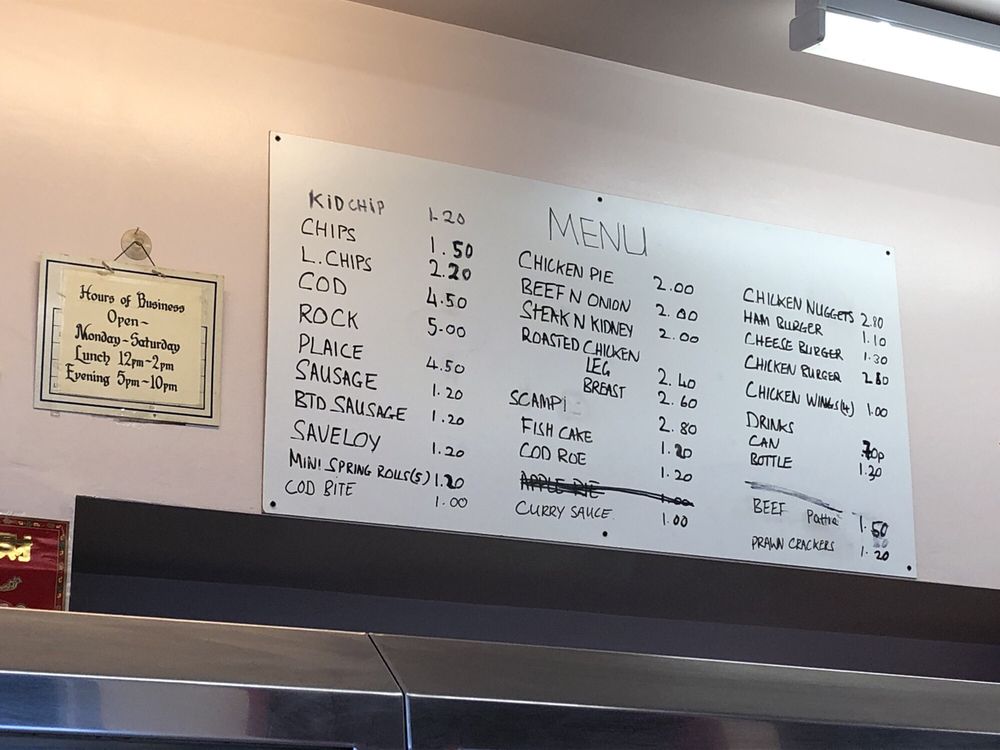 Hours of Business
Open-
Monday-Saturday
Lunch 12pm-2pm
Evening 5pm-10pm
MENU
KID CHIP 1.20
CHIPS 1.50
L.CHIPS 2.20
COD 4.50
ROCK 5.00
PLAICE 4.50
SAUSAGE 1.20
BTD SAUSAGE 1.20
SAVELOY 1.20
MINI SPRING ROLLS(5) 1.20
COD BITE 1.00
CHICKEN PIE 2.00
BEEF N ONION 2.00
STEAK N KIDNEY 2.00
ROASTED CHICKEN
LEG 2.40
BREAST 2.60
SCAMPI 2.80
FISH CAKE 1.20
COD ROE 1.20
APPLE PIE 1.00
CURRY SAUCE 1.00
CHICKEN NUGGETS 2.80
HAM BURGER 1.10
CHEESE BURGER 1.30
CHICKEN BURGER 2.80
CHICKEN WINGS(4) 1.00
DRINKS
CAN 70p
BOTTLE 1.30
BEEF Pattie 1.50
PRAWN CRACKERS 1.20